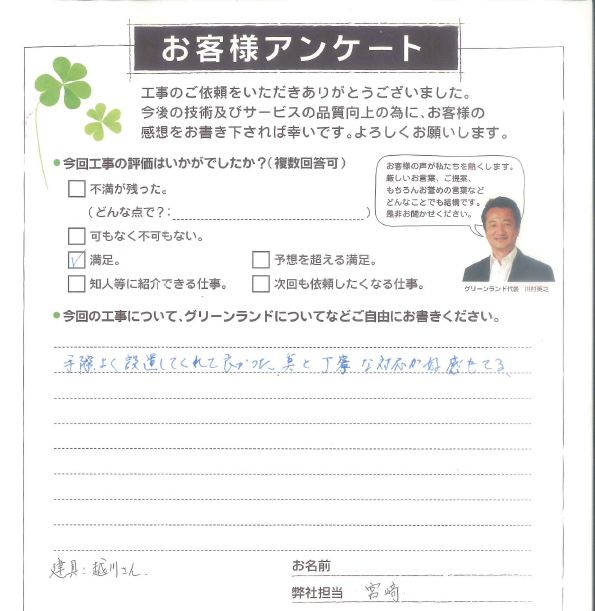 お客様アンケート
工事のご依頼をいただきありがとうございました。
今後の技術及びサービスの品質向上の為に、お客様の
感想をお書き下されば幸いです。よろしくお願いします。
●今回工事の評価はいかがでしたか？（複数回答可）
不満が残った。
（どんな点で？：　）
可もなく不可もない。
満足。
予想を超える満足。
知人等に紹介できる仕事。
次回も依頼したくなる仕事。
お客様の声が私たちを熱くします。
厳しいお言葉、ご提案、
もちろんお誉めの言葉など
どんなことでも結構です。
是非お聞かせください。
グリーンランド代表　川村英之
●今回の工事について、グリーンランドについてなどご自由にお書きください。
手際よく設置してくれて良かった。
丁寧な対応が好感もてる。
建具：越川さん.
お名前
弊社担当　宮崎